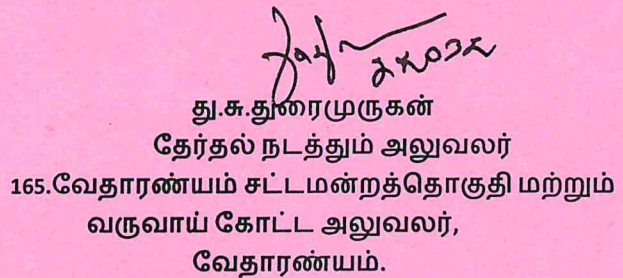 து.சு.துரைமுருகன்
தேர்தல் நடத்தும் அலுவலர்
165.வேதாரண்யம் சட்டமன்றத்தொகுதி மற்றும்
வருவாய் கோட்ட அலுவலர்,
வேதாரண்யம்.